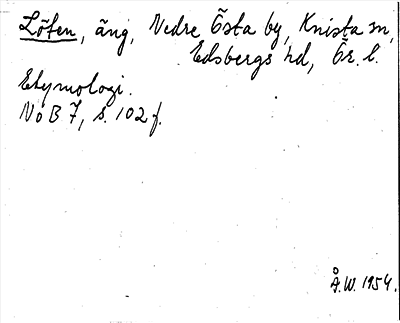 Löten, äng, Nedre Östa by, Knista sn,
Edsbergs hd, Ör. l.
Etymologi.
NoB 7, s. 102 f.
Å.W. 1954.